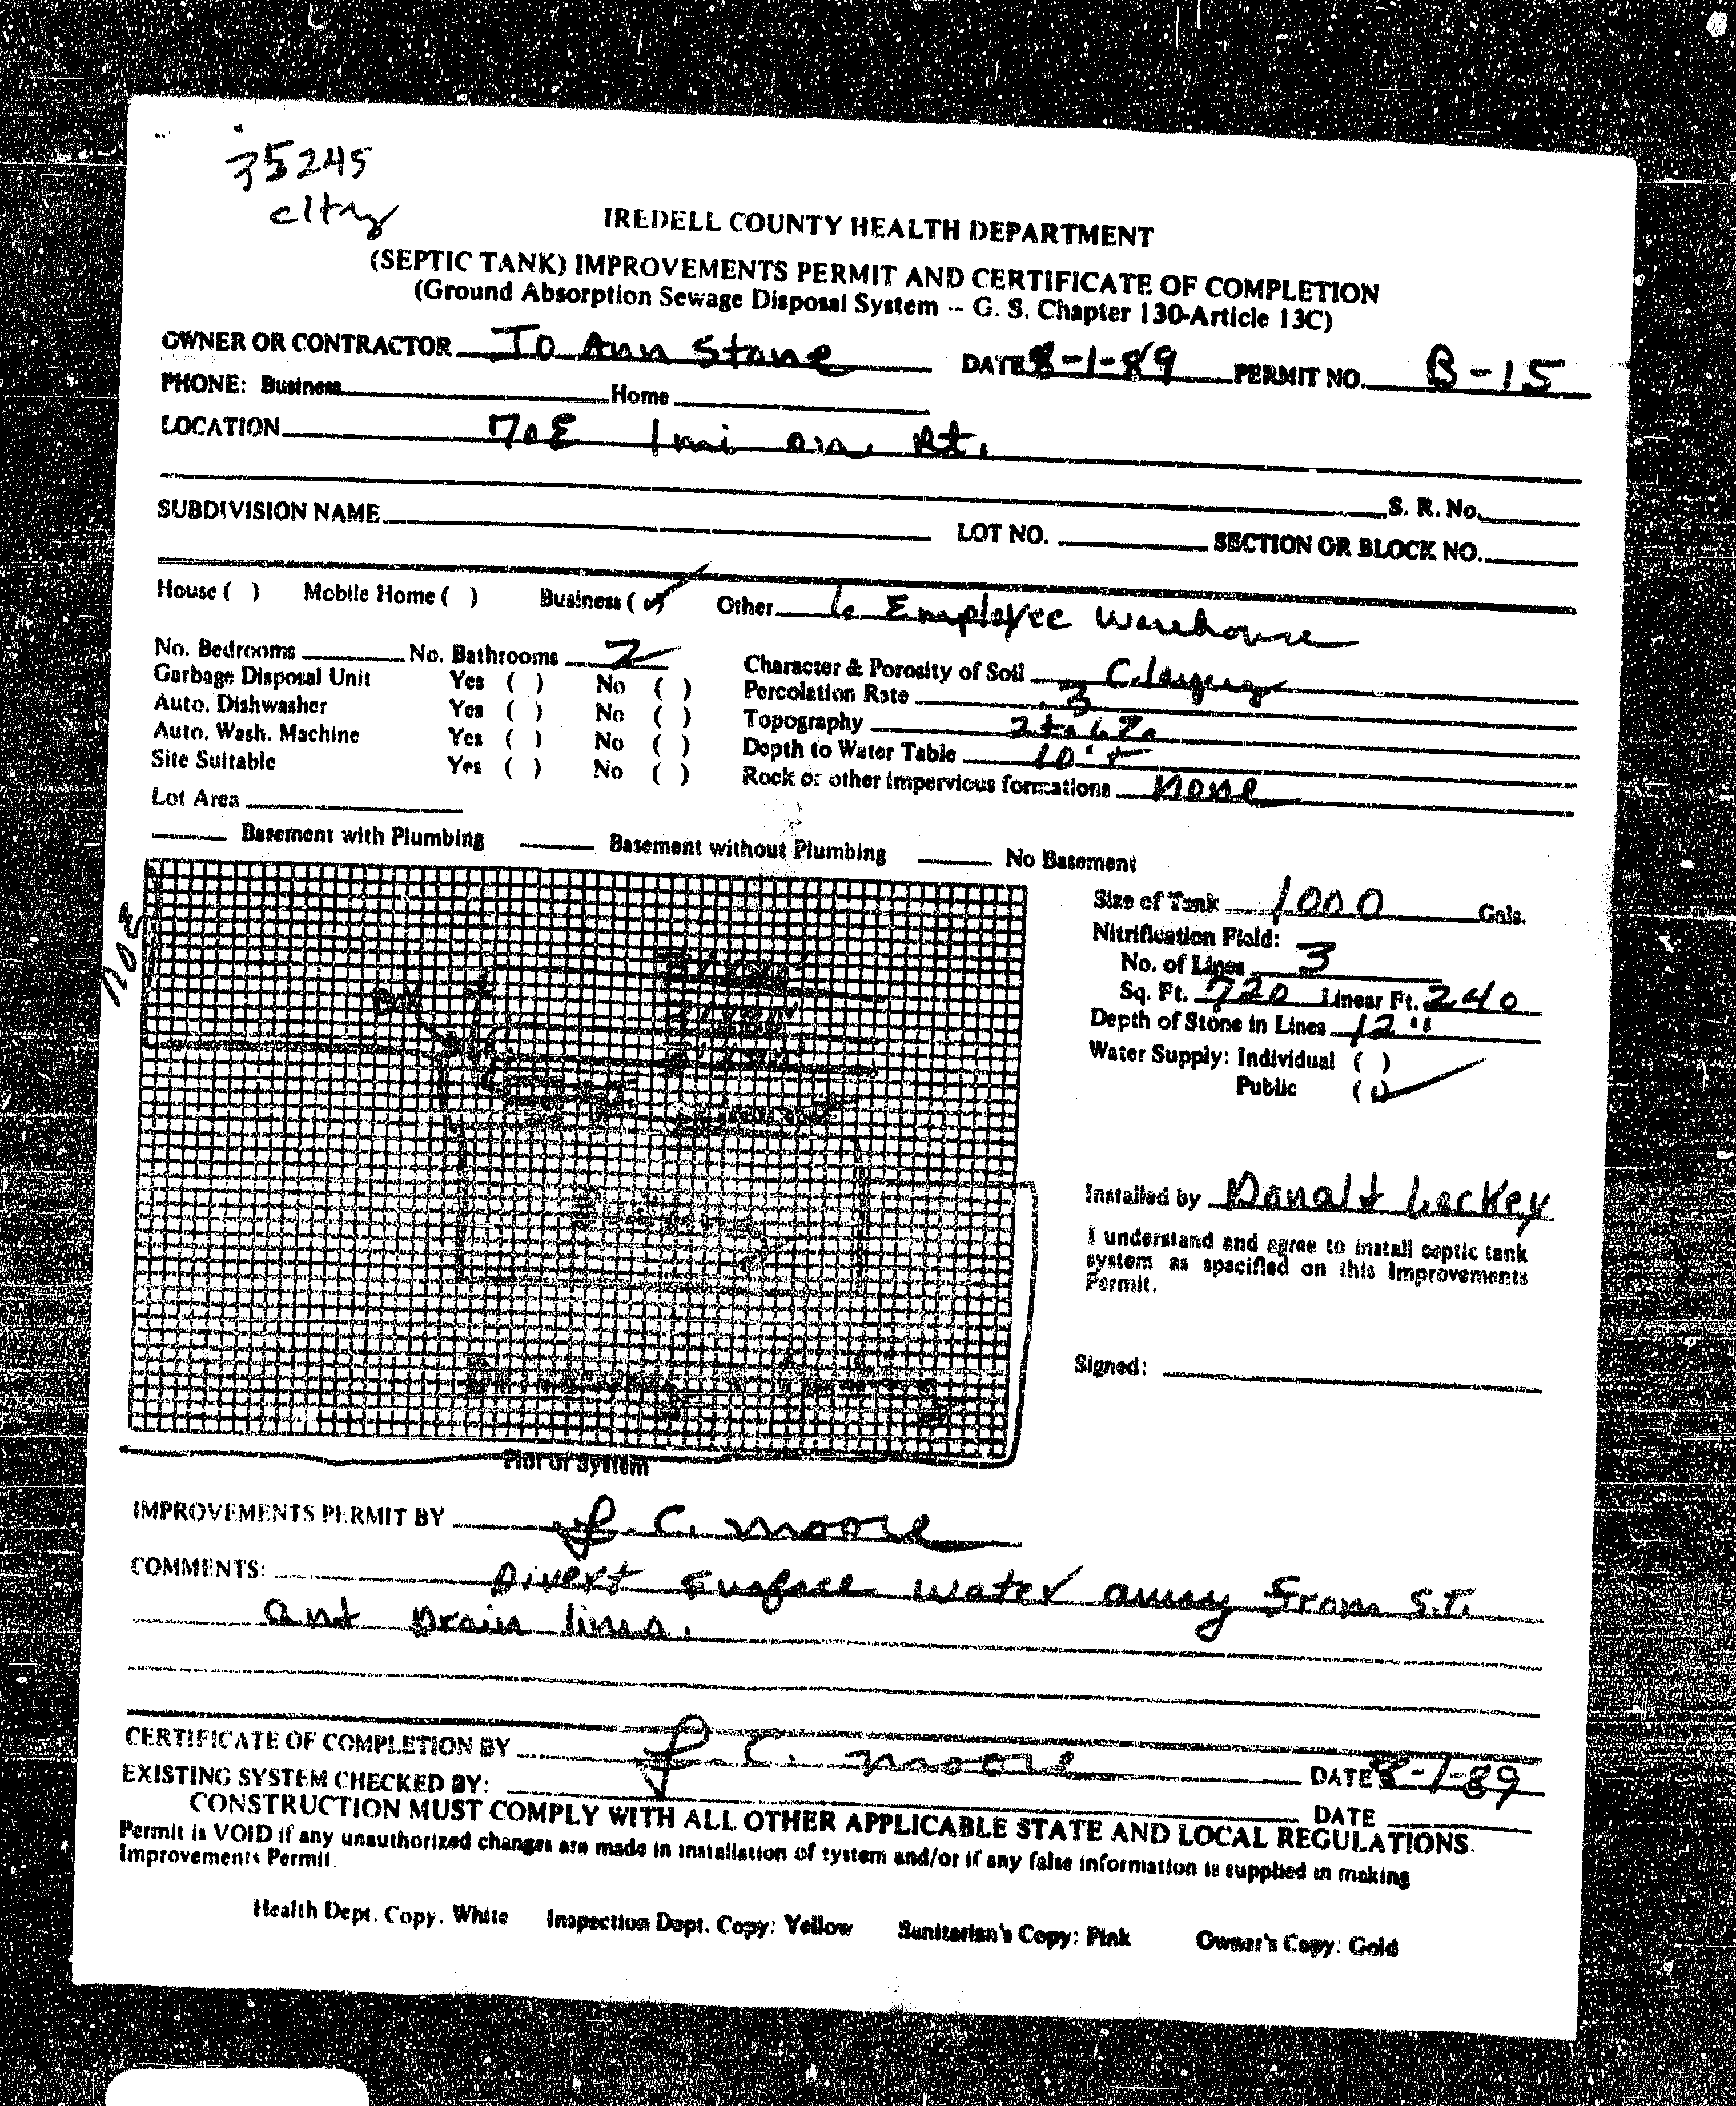 35245
IREDELL COUNTY HEALTH DEPARTMENT
(SEPTIC TANK) IMPROVEMENTS PERMIT AND CERTIFICATE OF COMPLETION
(Ground Absorption Sewage Disposal System -- G. S. Chapter 130-Article 13C)
OWNER OR CONTRACTOR Jo Ann Stone DATE 8-1-89 PERMIT NO. B-15
PHONE: Business Home
LOCATION 70E 1 mi on Rt.
S. R. No.
SUBDIVISION NAME LOT NO. SECTION OR BLOCK NO.
House ( ) Mobile Home ( ) Business (✓) Other 6 Employee Warehouse
No. Bedrooms No. Bathrooms 2
Garbage Disposal Unit Yes ( ) No ( )
Auto. Dishwasher Yes ( ) No ( )
Auto. Wash. Machine Yes ( ) No ( )
Site Suitable Yes ( ) No ( )
Lot Area
Character & Porosity of Soil Clayey
Percolation Rate .3
Topography 2 to 6%
Depth to Water Table 10'+
Rock or other impervious formations None
Basement with Plumbing Basement without Plumbing No Basement
70E
Size of Tank 1000 Gals.
Nitrification Field:
No. of Lines 3
Sq. Ft. 720 Linear Ft. 240
Depth of Stone in Lines 12"
Water Supply: Individual ( )
Public (✓)
Installed by Donald Lackey
I understand and agree to install septic tank
system as specified on this Improvements
Permit.
Signed:
Plot of System
IMPROVEMENTS PERMIT BY J. C. Moore
COMMENTS: Divert surface water away from S.T.
and Drain lines.
CERTIFICATE OF COMPLETION BY J. C. Moore DATE 8-1-89
EXISTING SYSTEM CHECKED BY: DATE
CONSTRUCTION MUST COMPLY WITH ALL OTHER APPLICABLE STATE AND LOCAL REGULATIONS.
Permit is VOID if any unauthorized changes are made in installation of system and/or if any false information is supplied in making
Improvements Permit.
Health Dept. Copy. White Inspection Dept. Copy: Yellow Sanitarian's Copy: Pink Owner's Copy: Gold